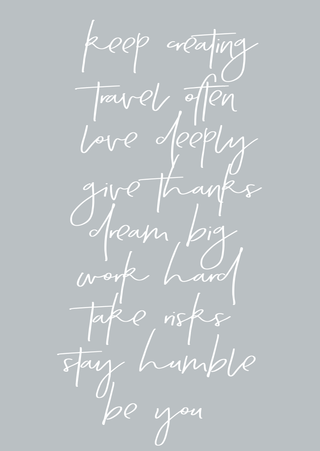 keep creating
travel often
love deeply
give thanks
dream big
work hard
take risks
stay humble
be you